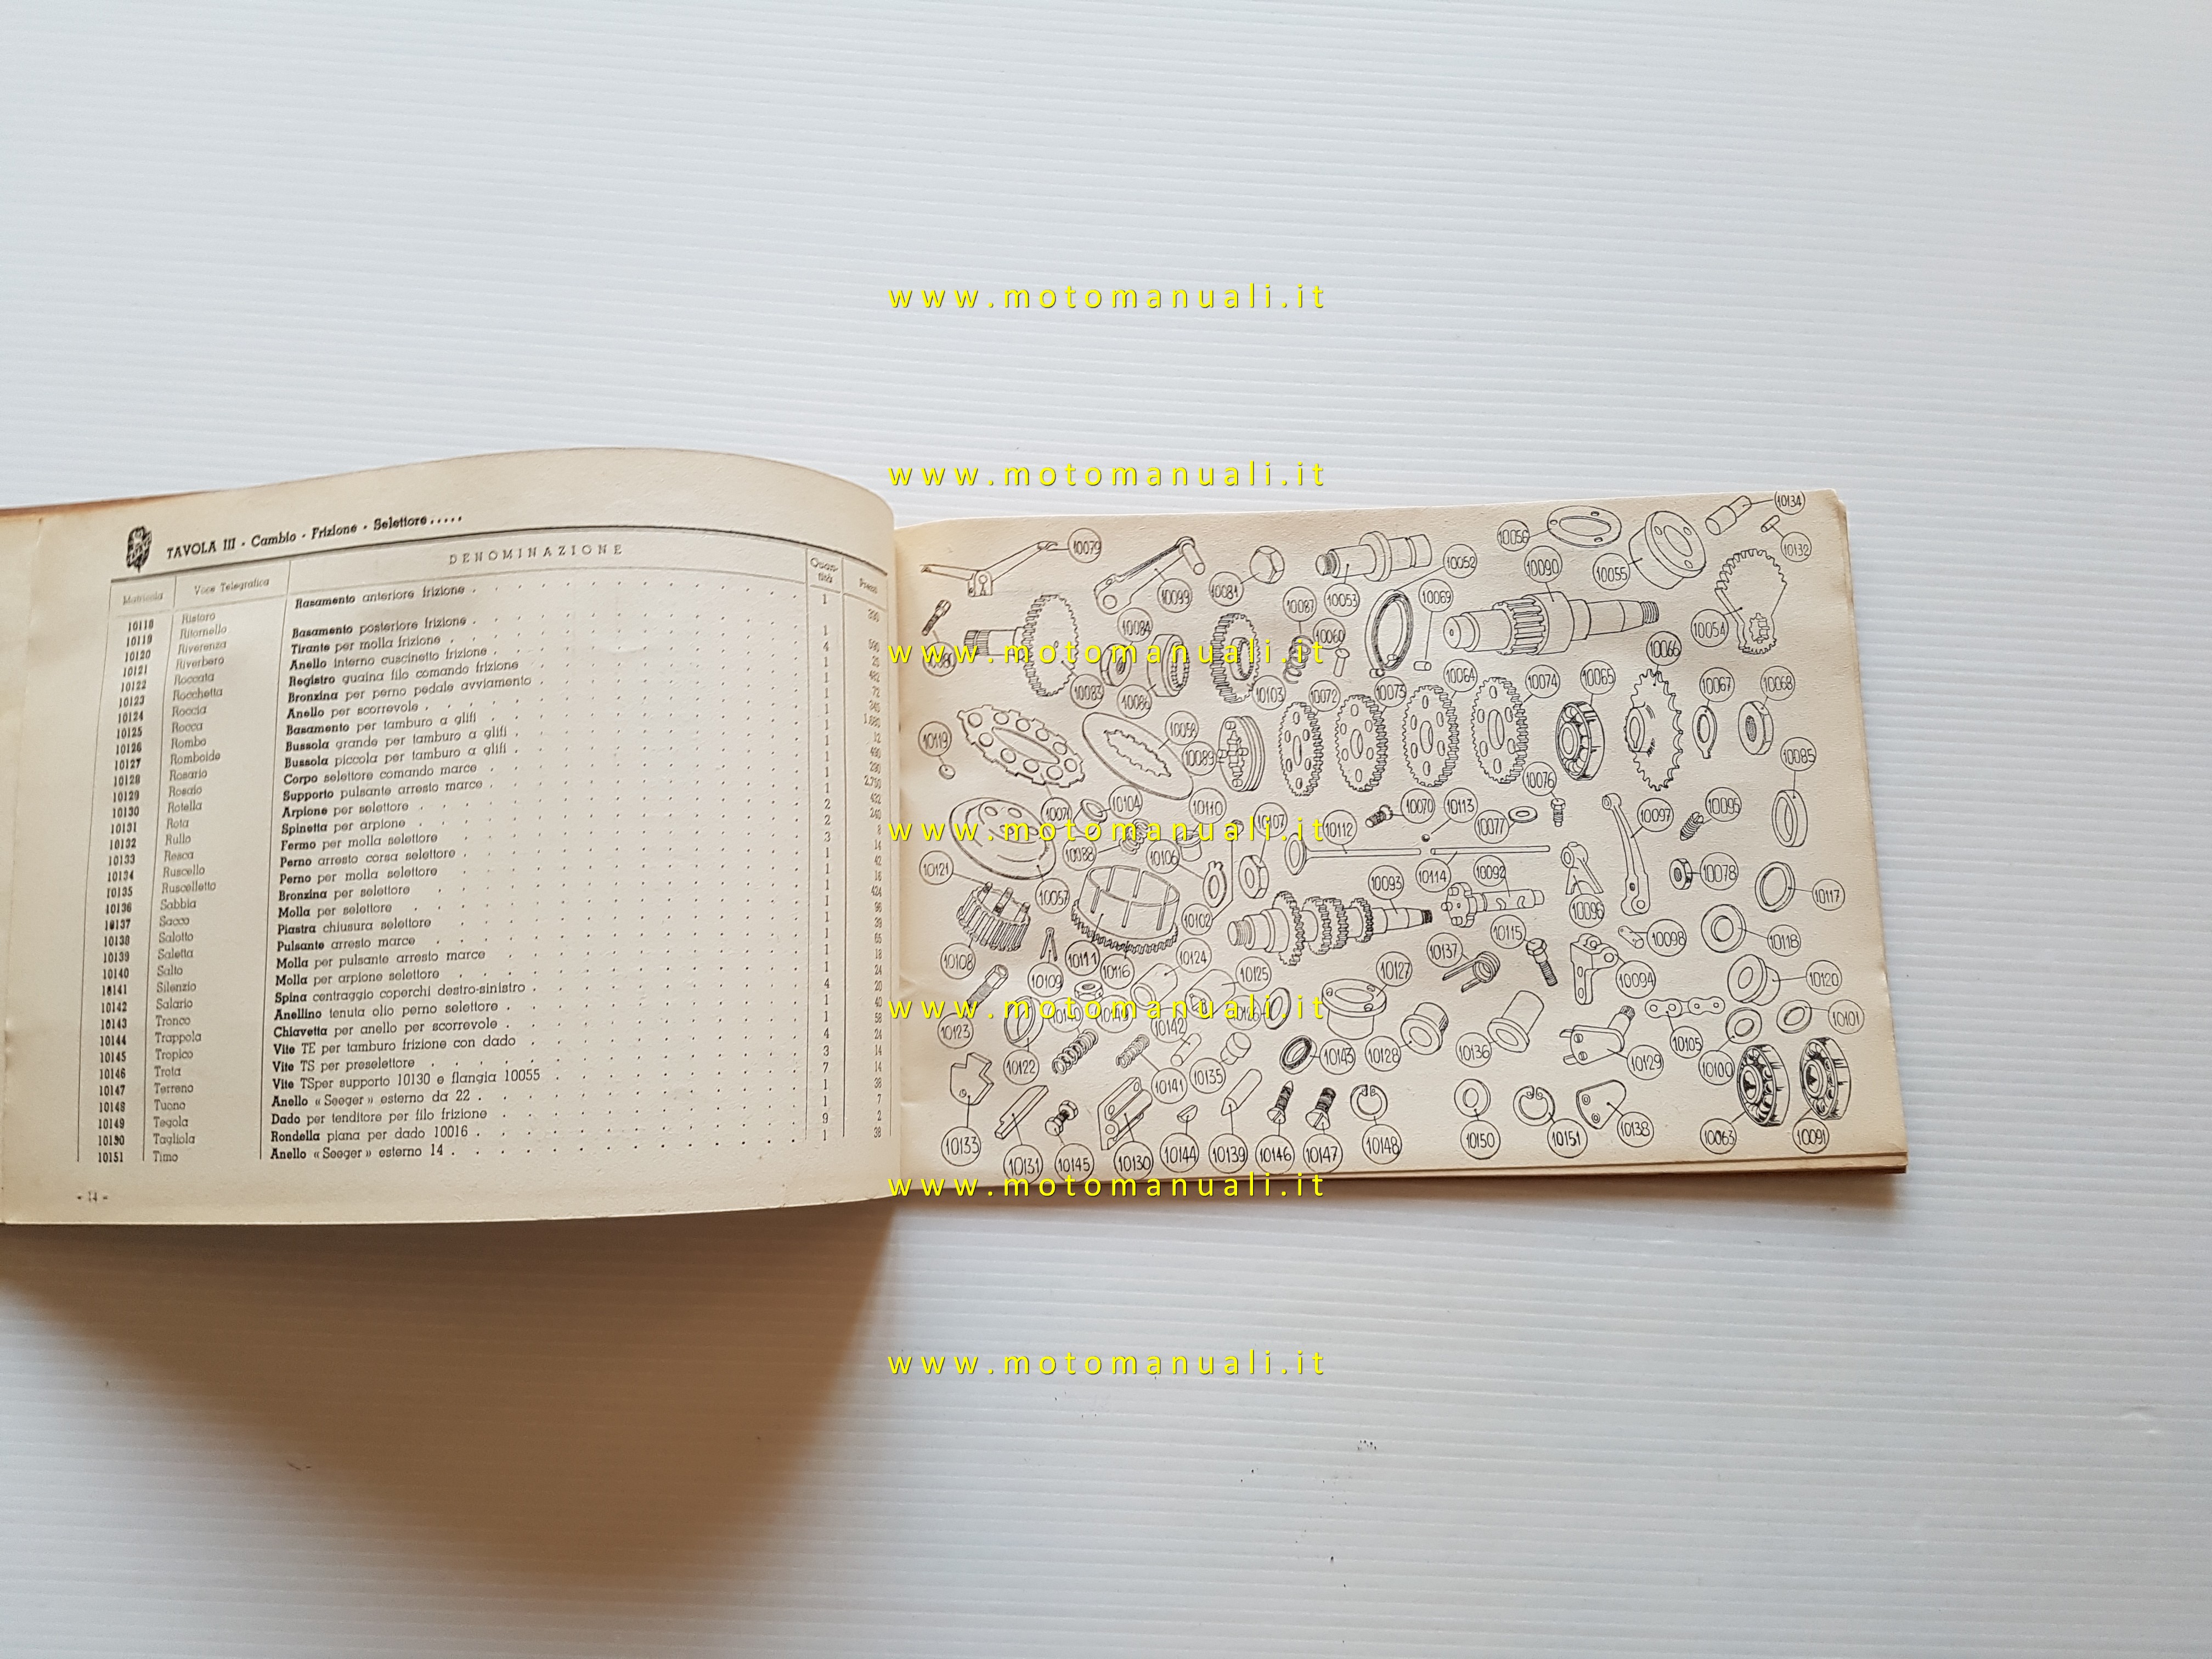 TAVOLA III - Cambio - Frizione - Selettore . . . . .
Matricola Voce Telegrafica DENOMINAZIONE Quan-tità Prezzi
10118 Ristoro Rasamento anteriore frizione 1
10119 Ritornello Basamento posteriore frizione 1
10120 Riverenza Tirante per molla frizione 4
10121 Riverbero Anello interno cuscinetto frizione 1
10122 Roccata Registro guaina filo comando frizione 1
10123 Rocchetta Bronzina per perno pedale avviamento 1
10124 Roccia Anello per scorrevole 1
10125 Rocca Basamento per tamburo a glifi 1
10126 Rombo Bussola grande per tamburo a glifi 1
10127 Romboide Bussola piccola per tamburo a glifi 1
10128 Rosario Corpo selettore comando marce 1
10129 Rosaio Supporto pulsante arresto marce 1
10130 Rotella Arpione per selettore 2
10131 Rota Spinetta per arpione 2
10132 Rullo Fermo per molla selettore 3
10133 Resca Perno arresto corsa selettore 1
10134 Ruscello Perno per molla selettore 1
10135 Ruscelletto Bronzina per selettore 1
10136 Sabbia Molla per selettore 1
10137 Sacco Piastra chiusura selettore 1
10138 Salotto Pulsante arresto marce 1
10139 Saletta Molla per pulsante arresto marce 1
10140 Salto Molla per arpione selettore
10141 Silenzio Spina centraggio coperchi destro-sinistro
10142 Salario Anellino tenuta olio perno selettore
10143 Tronco Chiavetta per anello per scorrevole
10144 Trappola Vite TE per tamburo frizione con dado
10145 Tropico Vite TS per preselettore
10146 Trota Vite TSper supporto 10130 e flangia 10055
10147 Terreno Anello « Seeger » esterno da 22
10148 Tuono Dado per tenditore per filo frizione
10149 Tegola Rondella piana per dado 10016
10150 Tagliola Anello « Seeger » esterno 14
10151 Timo
- 14 -
10079 10099 10081 10053 10052 10056 10090 10055 10134 10132
10080 10084 10087 10060 10069 10054
10083 10086 10103 10072 10073 10064 10074 10065 10066 10067 10068
10119 10059 10089 10076 10085
10071 10104 10110 10107 10112 10070 10113 10077 10097 10095
10121 10057 10088 10106 10102 10093 10114 10092 10096 10078 10117
10108 10109 10111 10116 10124 10125 10127 10137 10115 10098 10094 10118 10120
10123 10122 10142 10126 10143 10128 10136 10129 10105 10100 10101
10141 10135 10063 10091
10133 10131 10145 10130 10144 10139 10146 10147 10148 10150 10151 10138
www.motomanuali.it
www.motomanuali.it
www.motomanuali.it
www.motomanuali.it
www.motomanuali.it
www.motomanuali.it
www.motomanuali.it